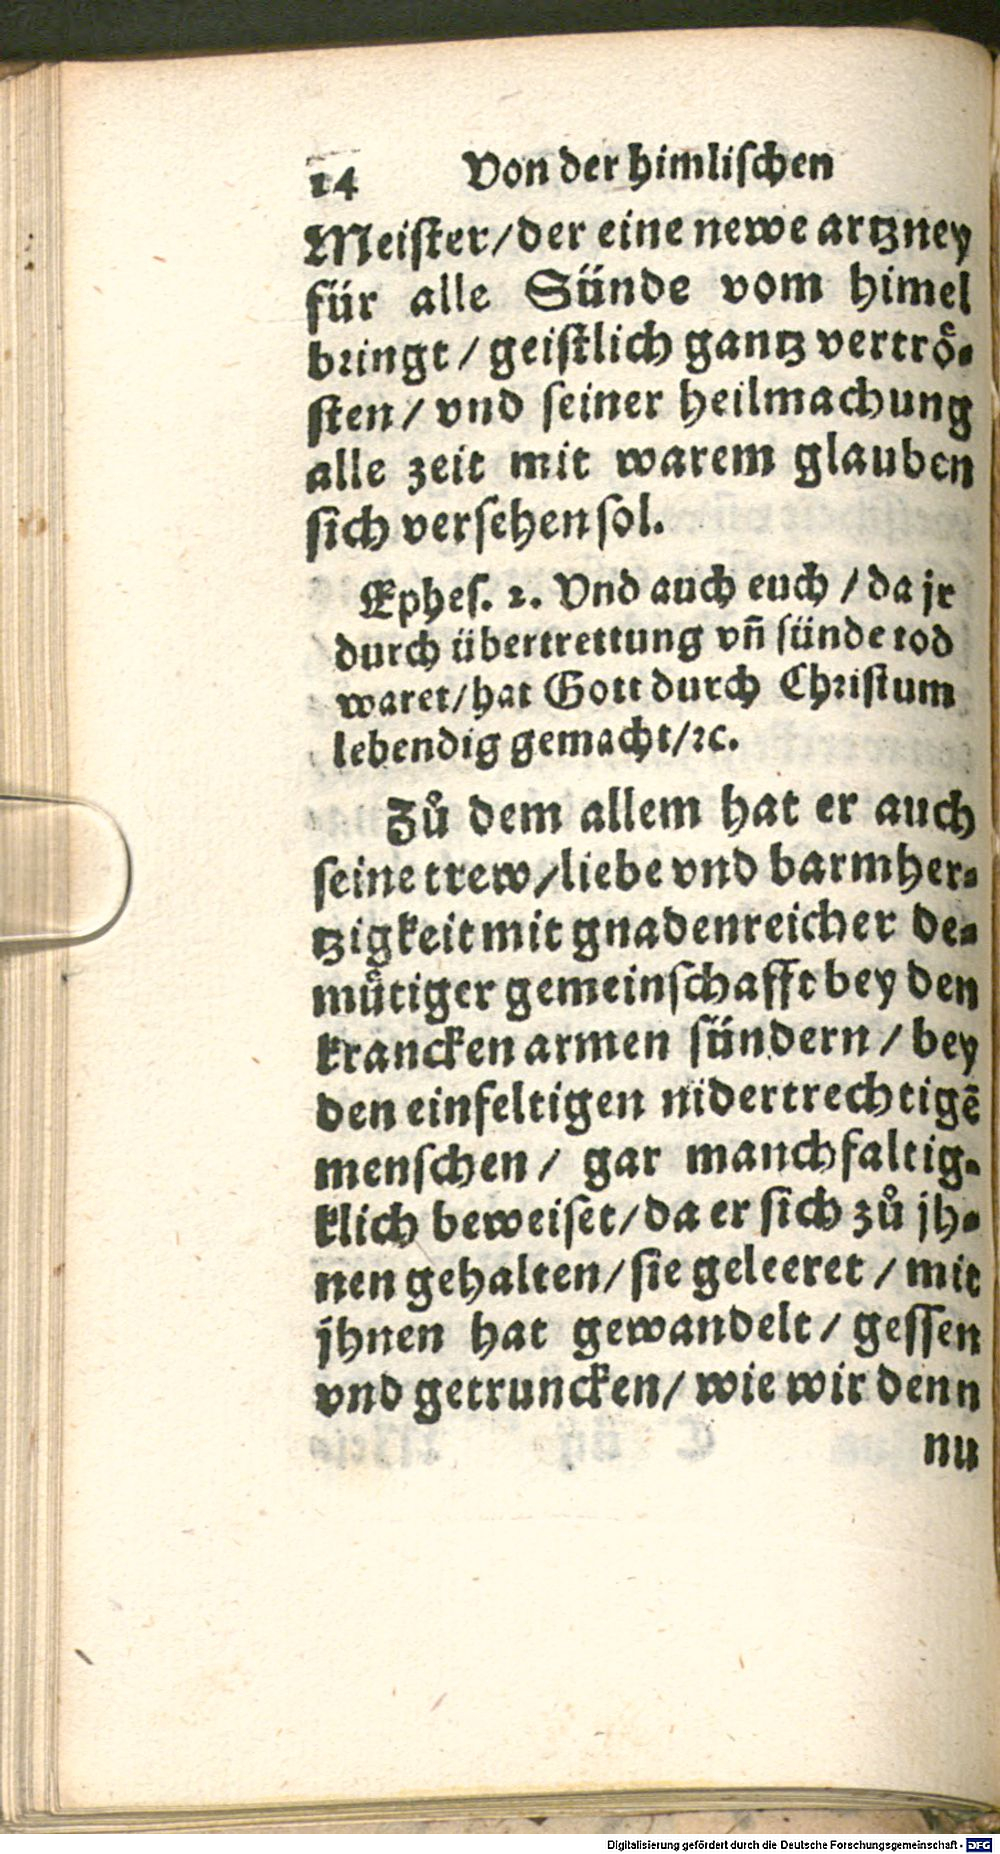 14 Von der himlischen
Meister/der eine newe artzney
für alle Sünde vom himel
bringt/geistlich gantz vertrö-
sten/vnd seiner heilmachung
alle zeit mit warem glauben
sich versehen sol.
Ephes. 2. Vnd auch euch/da jr
durch übertrettung vn̄ sünde tod
waret/hat Gott durch Christum
lebendig gemacht/ꝛc.
Zů dem allem hat er auch
seine trew/liebe vnd barmher-
tzigkeit mit gnadenreicher de-
muͤtiger gemeinschafft bey den
krancken armen sündern/bey
den einfeltigen nidertrechtigē
menschen/ gar manchfaltig-
klich beweiset/da er sich zů jh-
nen gehalten/sie geleeret/mit
jhnen hat gewandelt/gessen
vnd getruncken/wie wir denn
nu
Digitalisierung gefördert durch die Deutsche Forschungsgemeinschaft - DFG